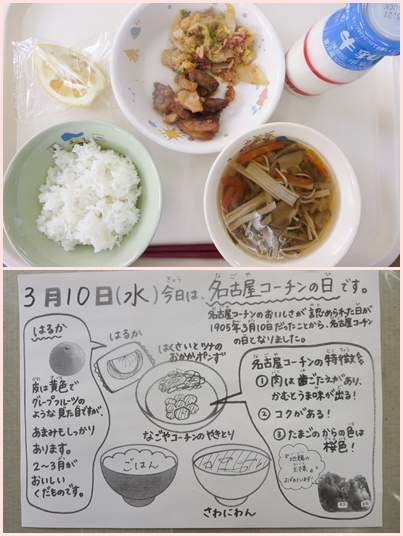 3月10日(水)今日は、名古屋コーチンの日です。
きょう
なごや
名古屋コーチンのおいしさが認められた日が
1905年3月10日だったことから、名古屋コーチン
の日となりました。
はるか
はるか
皮は黄色で
グレープフルーツの
ような見た目ですが、
あまみもしっかり
あります。
2〜3月が
おいしい
くだものです。
はくさいとツナの
おかかポンず
なごやコーチンのやきとり
ごはん
さわにわん
名古屋コーチンの特徴
①肉は歯ごたえがあり、
かむとうま味が出る!
②コクがある!
③たまごのからの色は
桜色!